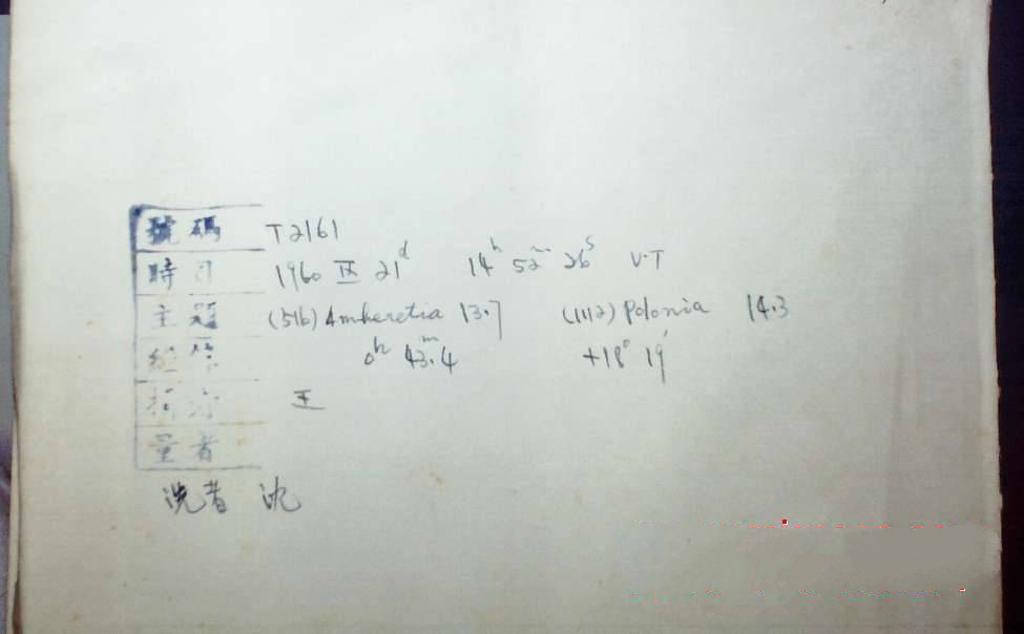 號碼 T2161
時 1960 IX 21d 14h 52m 26s U.T
主題 (516) Amherstia 13.7 (1112) Polonia 14.3
0h 43m.4 +18° 19′
王
量者
洗者 沈